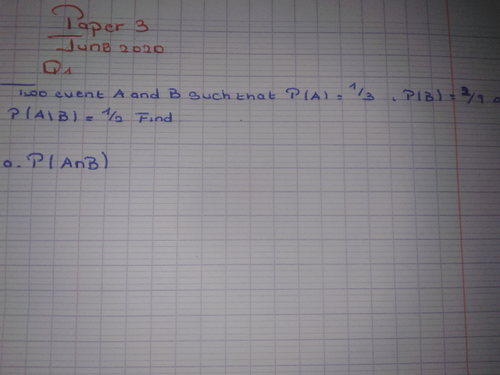 Paper 3
June 2020
Q1
Two event A and B such that P(A) = 1/3 , P(B) =
P(A|B) = 1/2 Find
a. P(A∩B)